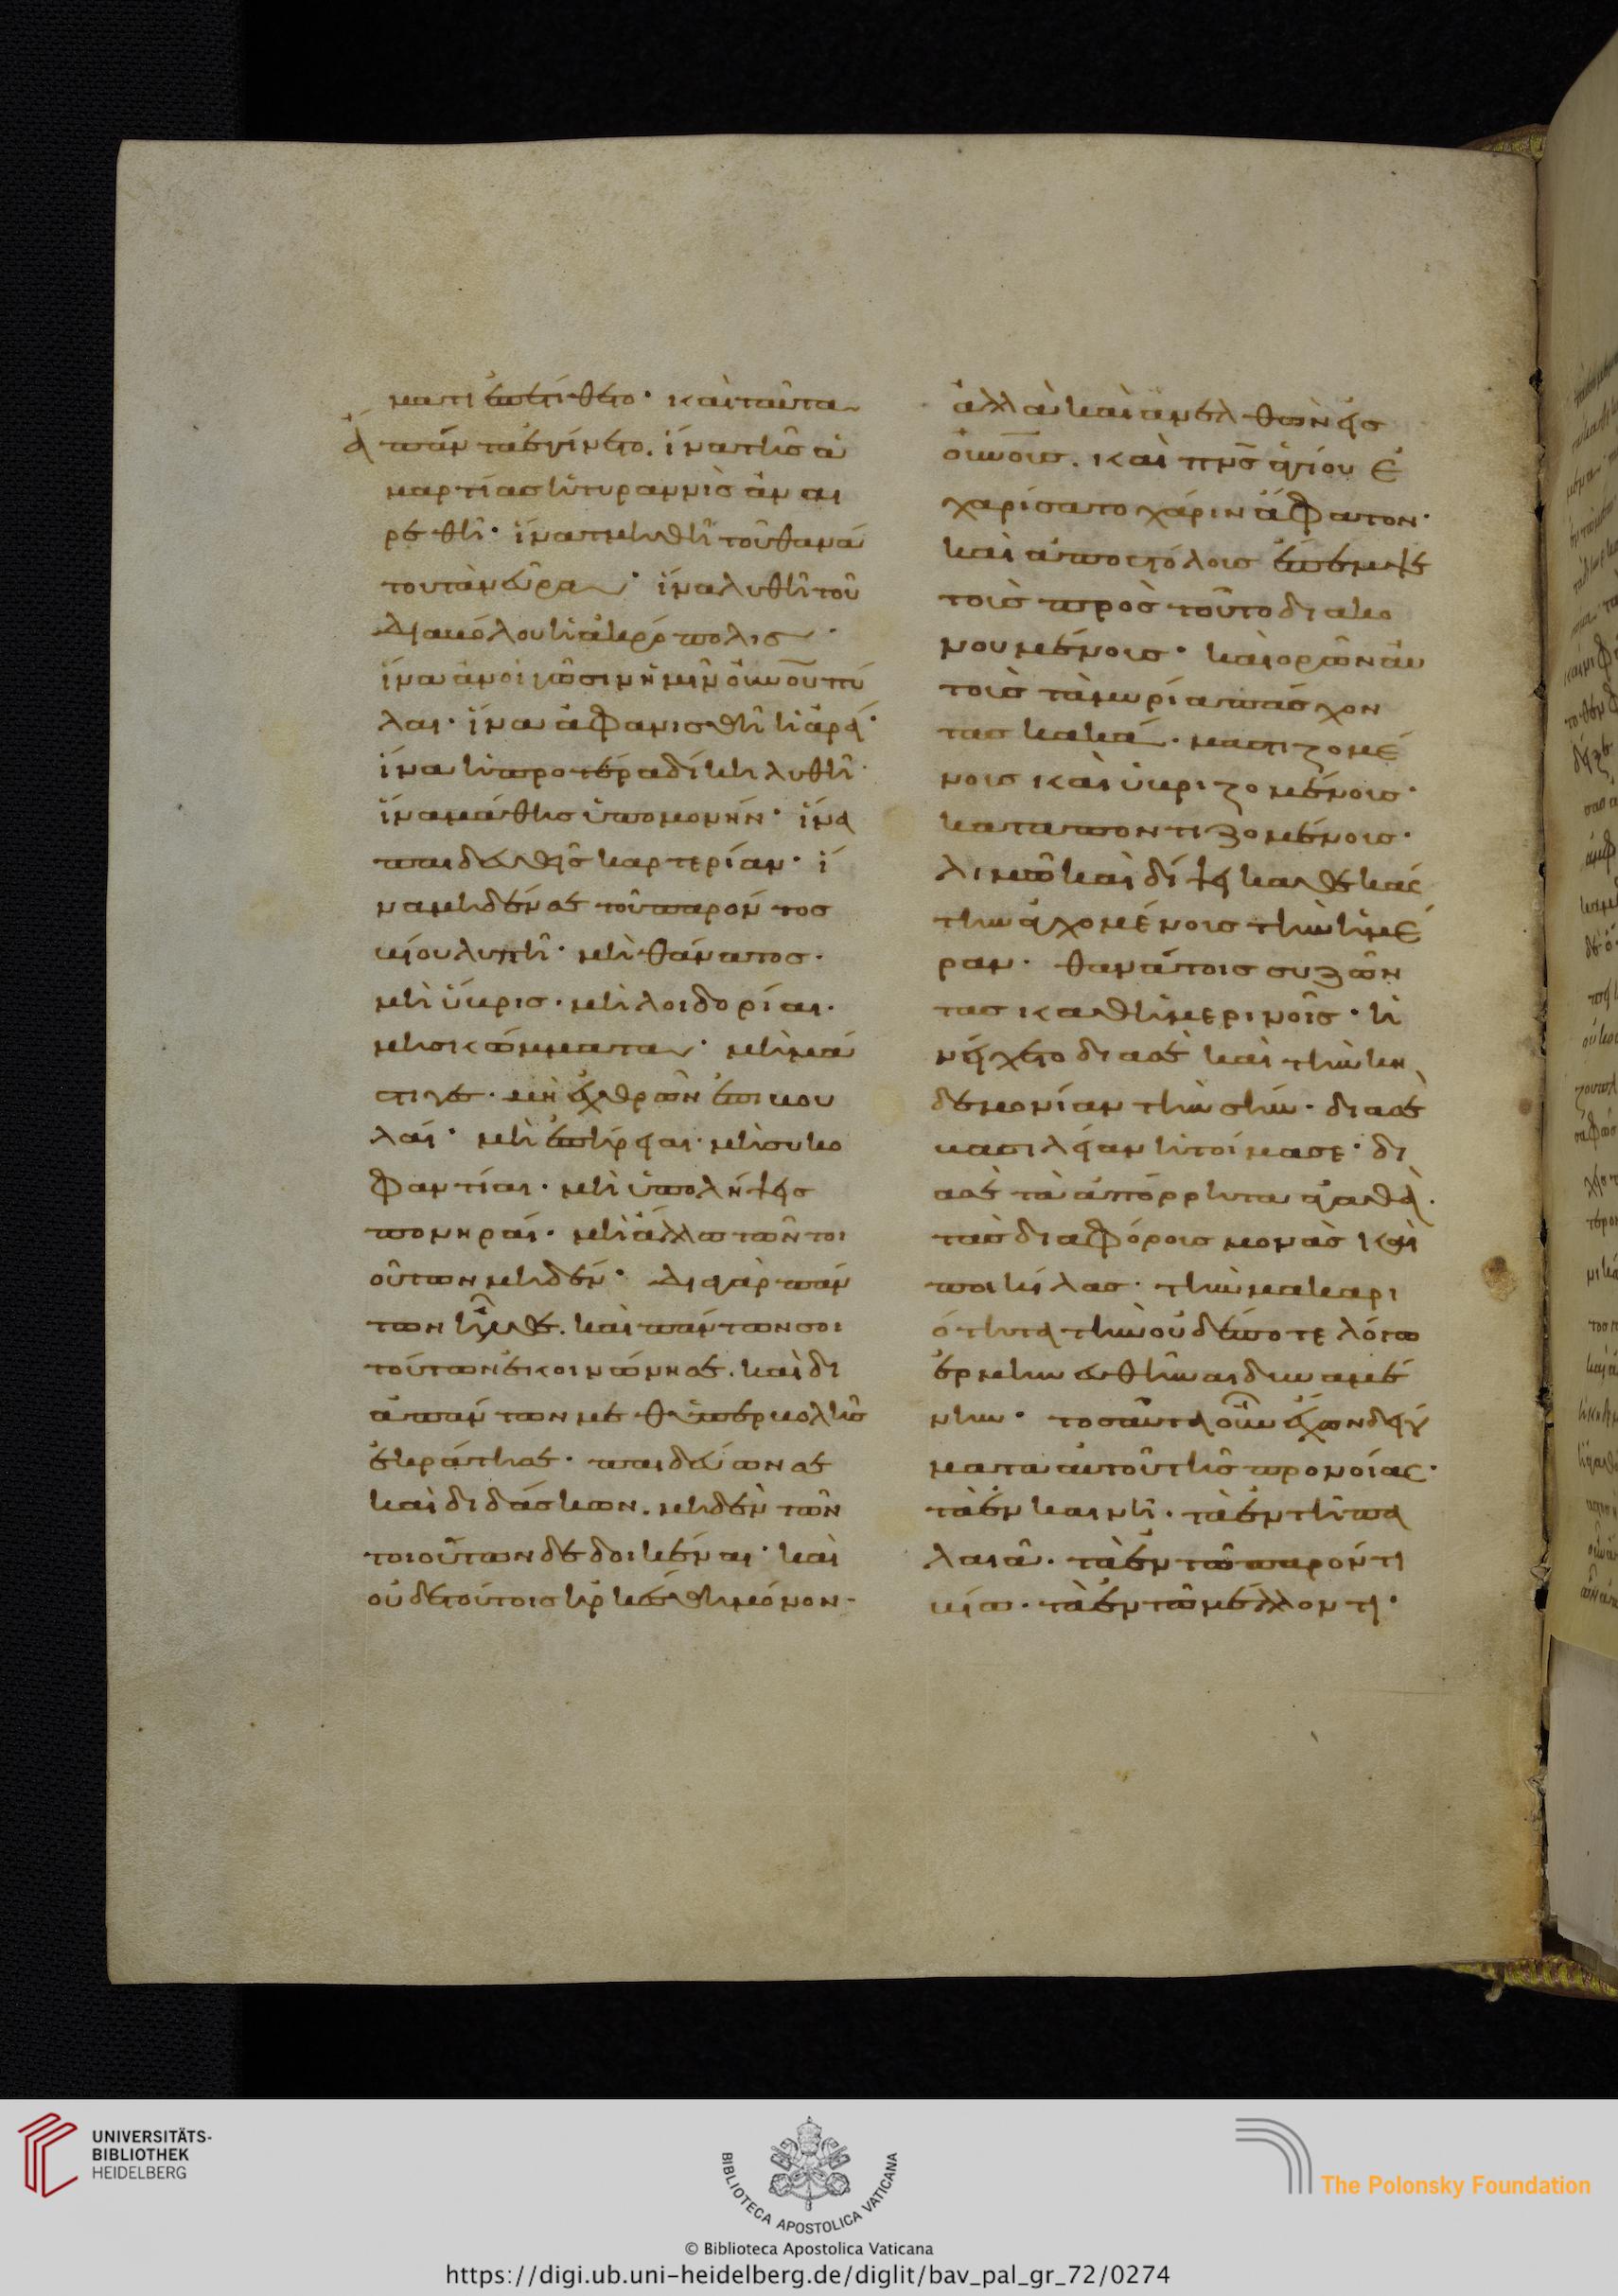 ματι ἐπετίθετο· καὶ ταῦτα
πάντα ἐγίνετο. ἵνα τῆς ἁ
μαρτίας ἡ τυραννὶς ἀναι
ρεθῆ· ἵνα τμηθῆ τοῦ θανά
του τὰ νεῦρα· ἵνα λυθῆ τοῦ
διαβόλου ἡ ἀκρόπολις·
ἵνα ἀνοιγῶσιν ἡμῖν οὐνοῦ πύ
λαι· ἵνα ἀφανισθῆ ἡ ἀρά·
ἵνα ἡ προτέρα δίκη λυθῆ·
ἵνα μάθης ὑπομονήν· ἵνα
παιδευθῆς καρτερίαν· ἵ
να μηδέν σε τοῦ παρόντος
βίου λυπῆ· μὴ θάνατος·
μὴ ὕβρις· μὴ λοιδορίαι·
μὴ σκώμματα· μὴ μά
στιγες· μὴ ἐχθρῶν ἐπιβου
λαί· μὴ ἐπήρειαι· μὴ συκο
φαντίαι· μὴ ὑπολήψεις
πονηραί· μὴ ἄλλο τῶν τοι
ούτων μηδέν· διὰ γὰρ πάν
των ἦλθε. καὶ πάντων σοι
τούτων ἐκοινώνησε. καὶ δι
ἁπάντων μεθ' ὑπερβολῆς
ἐκράτησε· παιδεύων σε
καὶ διδάσκων. μηδὲν τῶν
τοιούτων δεδοικέναι· καὶ
οὐδὲ τούτοις ἠρκέσθη μόνον·
ἀλλὰ καὶ ἀνελθὼν εἰς
οὐνοὺς. καὶ πνς ἁγίου ἐ
χαρίσατο χάριν ἄφατον·
καὶ ἀποστόλους ἔπεμψε
τοὺς πρὸς τοῦτο διακο
νουμένοις· καὶ ὁρῶν αὐ
τοὺς τὰ μυρία πάσχον
τας κακά· μαστιζομέ
νοις καὶ ὑβριζομένοις·
καταποντιζομένοις·
λιμῶ καὶ δίψει καθ' ἑκάς
την ἀγχομένοις τὴν ἡμέ
ραν· θανάτοις συζῶν
τας καθημερινοῖς· ἠ
νείχετο διὰ σὲ καὶ τὴν κη
δεμονίαν τὴν σήν· διὰ σὲ
βασιλείαν ἡτοίμασε· δι
ὰ σὲ τὰ ἀπόρρητα ἀγαθά·
τὰς διαφόρους μονὰς καὶ
ποικίλας· τὴν μακαρι
ότητα τὴν οὐδέποτε λόγω
ἑρμηνευθῆναι δυναμέ
νην· τοσαῦτα οὖν ἔχων δείγ
ματα αὐτοῦ τῆς προνοίας·
τὰ ἐν καινῆ· τὰ ἐν τῆ πα
λαιᾶ· τὰ ἐν τῶ παρόντι
βίω· τὰ ἐν τῶ μέλλοντι·
UNIVERSITÄTS-
BIBLIOTHEK
HEIDELBERG
BIBLIOTECA APOSTOLICA VATICANA
The Polonsky Foundation
© Biblioteca Apostolica Vaticana
https://digi.ub.uni-heidelberg.de/diglit/bav_pal_gr_72/0274